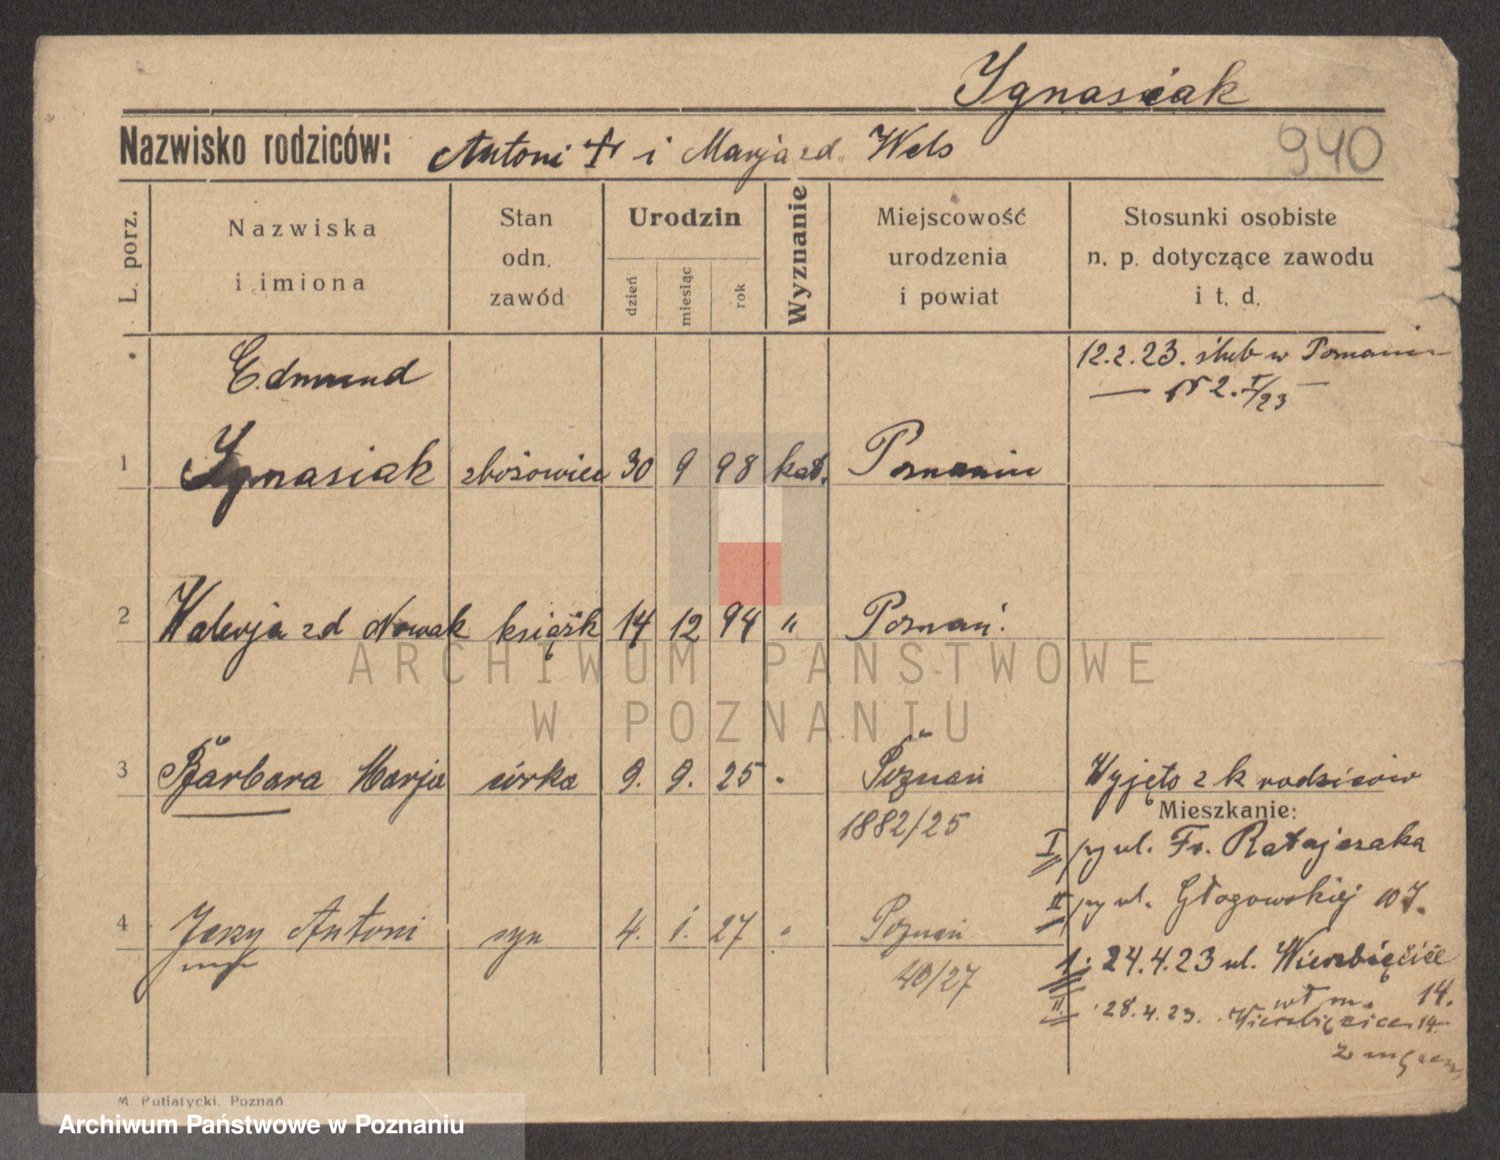 Ignasiak
Nazwisko rodziców: Antoni † i Marja zd. Wels
940
L. porz.
Nazwiska
i imiona
Stan
odn.
zawód
Urodzin
dzień
miesiąc
rok
Wyznanie
Miejscowość
urodzenia
i powiat
Stosunki osobiste
n. p. dotyczące zawodu
i t. d.
Edmund
12.2.23. ślub w Poznaniu
— № 2. I/23 —
1 Ignasiak zbożowiec 30 9 98 kat. Poznaniu
2 Walerja zd Nowak książk 14 12 94 " Poznań.
ARCHIWUM PAŃSTWOWE
W POZNANIU
3 Barbara Marja córka 9. 9. 25 " Poznań Wyjęto z k rodziców
1882/25
Mieszkanie:
I py ul. Fr. Ratajczaka
II py ul. Głogowskiej 107.
4 Jerzy Antoni syn 4. 1. 27 " Poznań
40/27
I. 24.4.23 ul. Wierzbięcice
wł m. 14.
II. 28.4.23. Wierzbięcice 14.
z
M. Putiatycki, Poznań
Archiwum Państwowe w Poznaniu